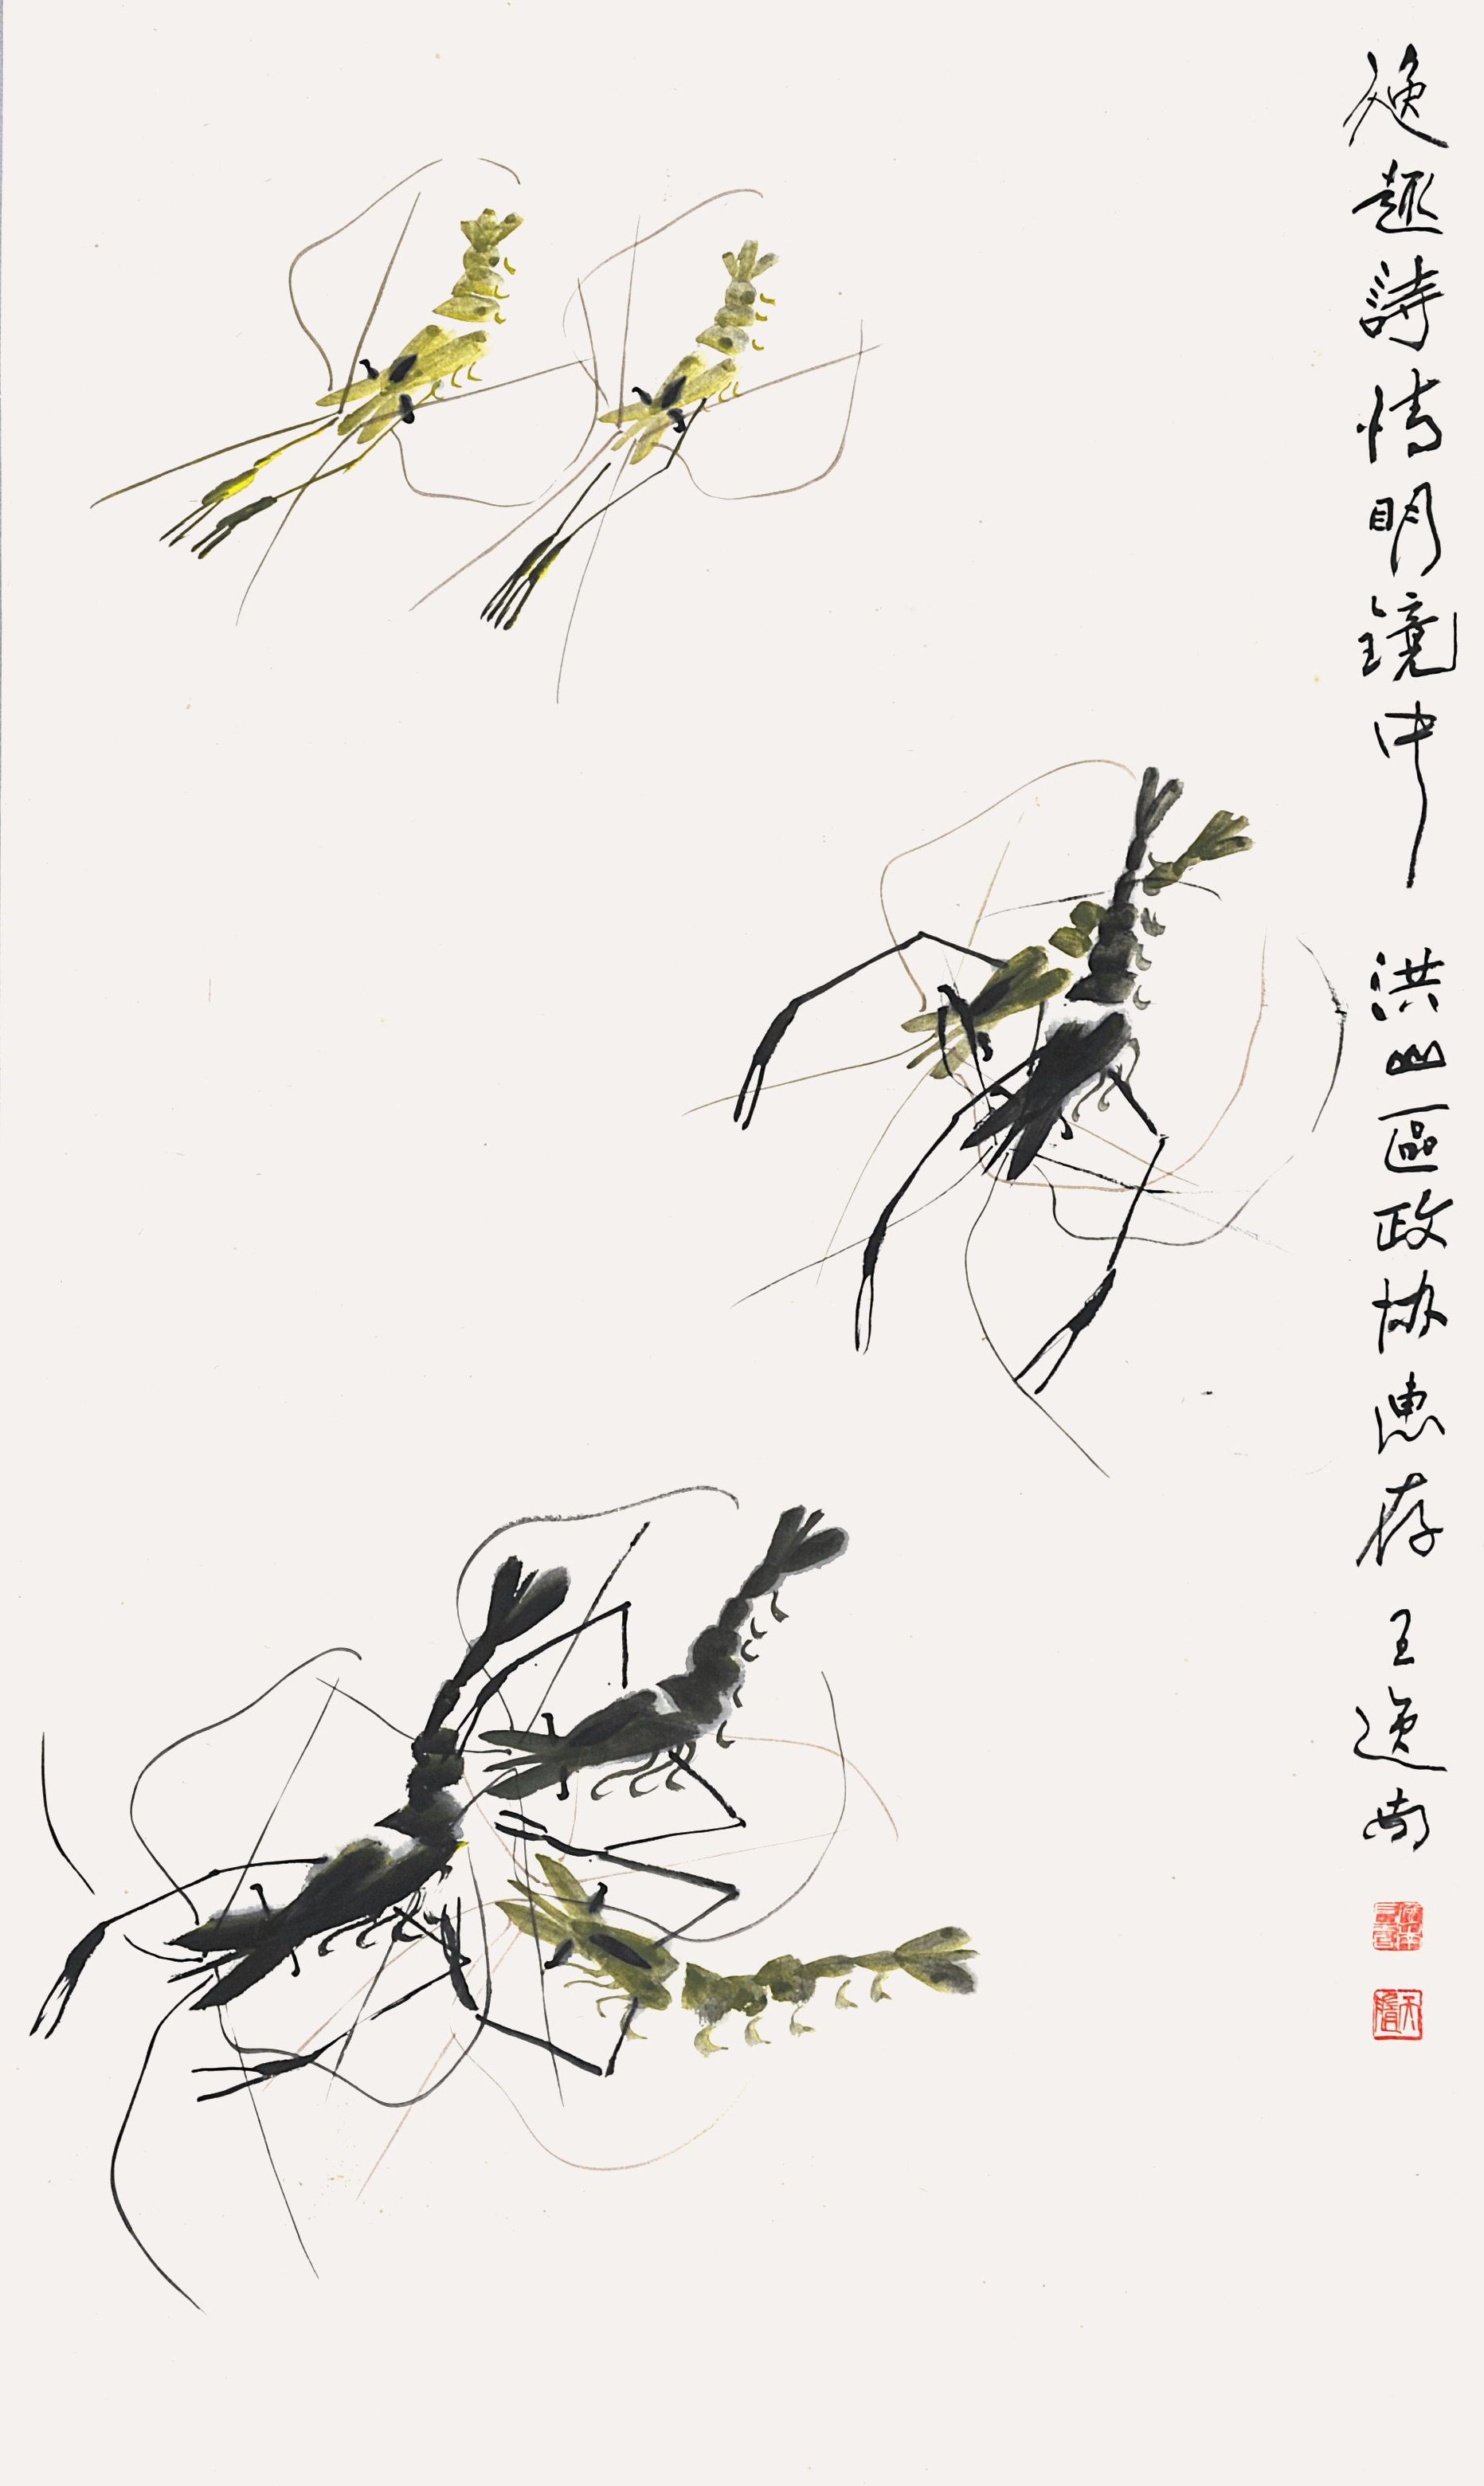 逸趣詩情明鏡中 洪山區政协惠存 王逸尚